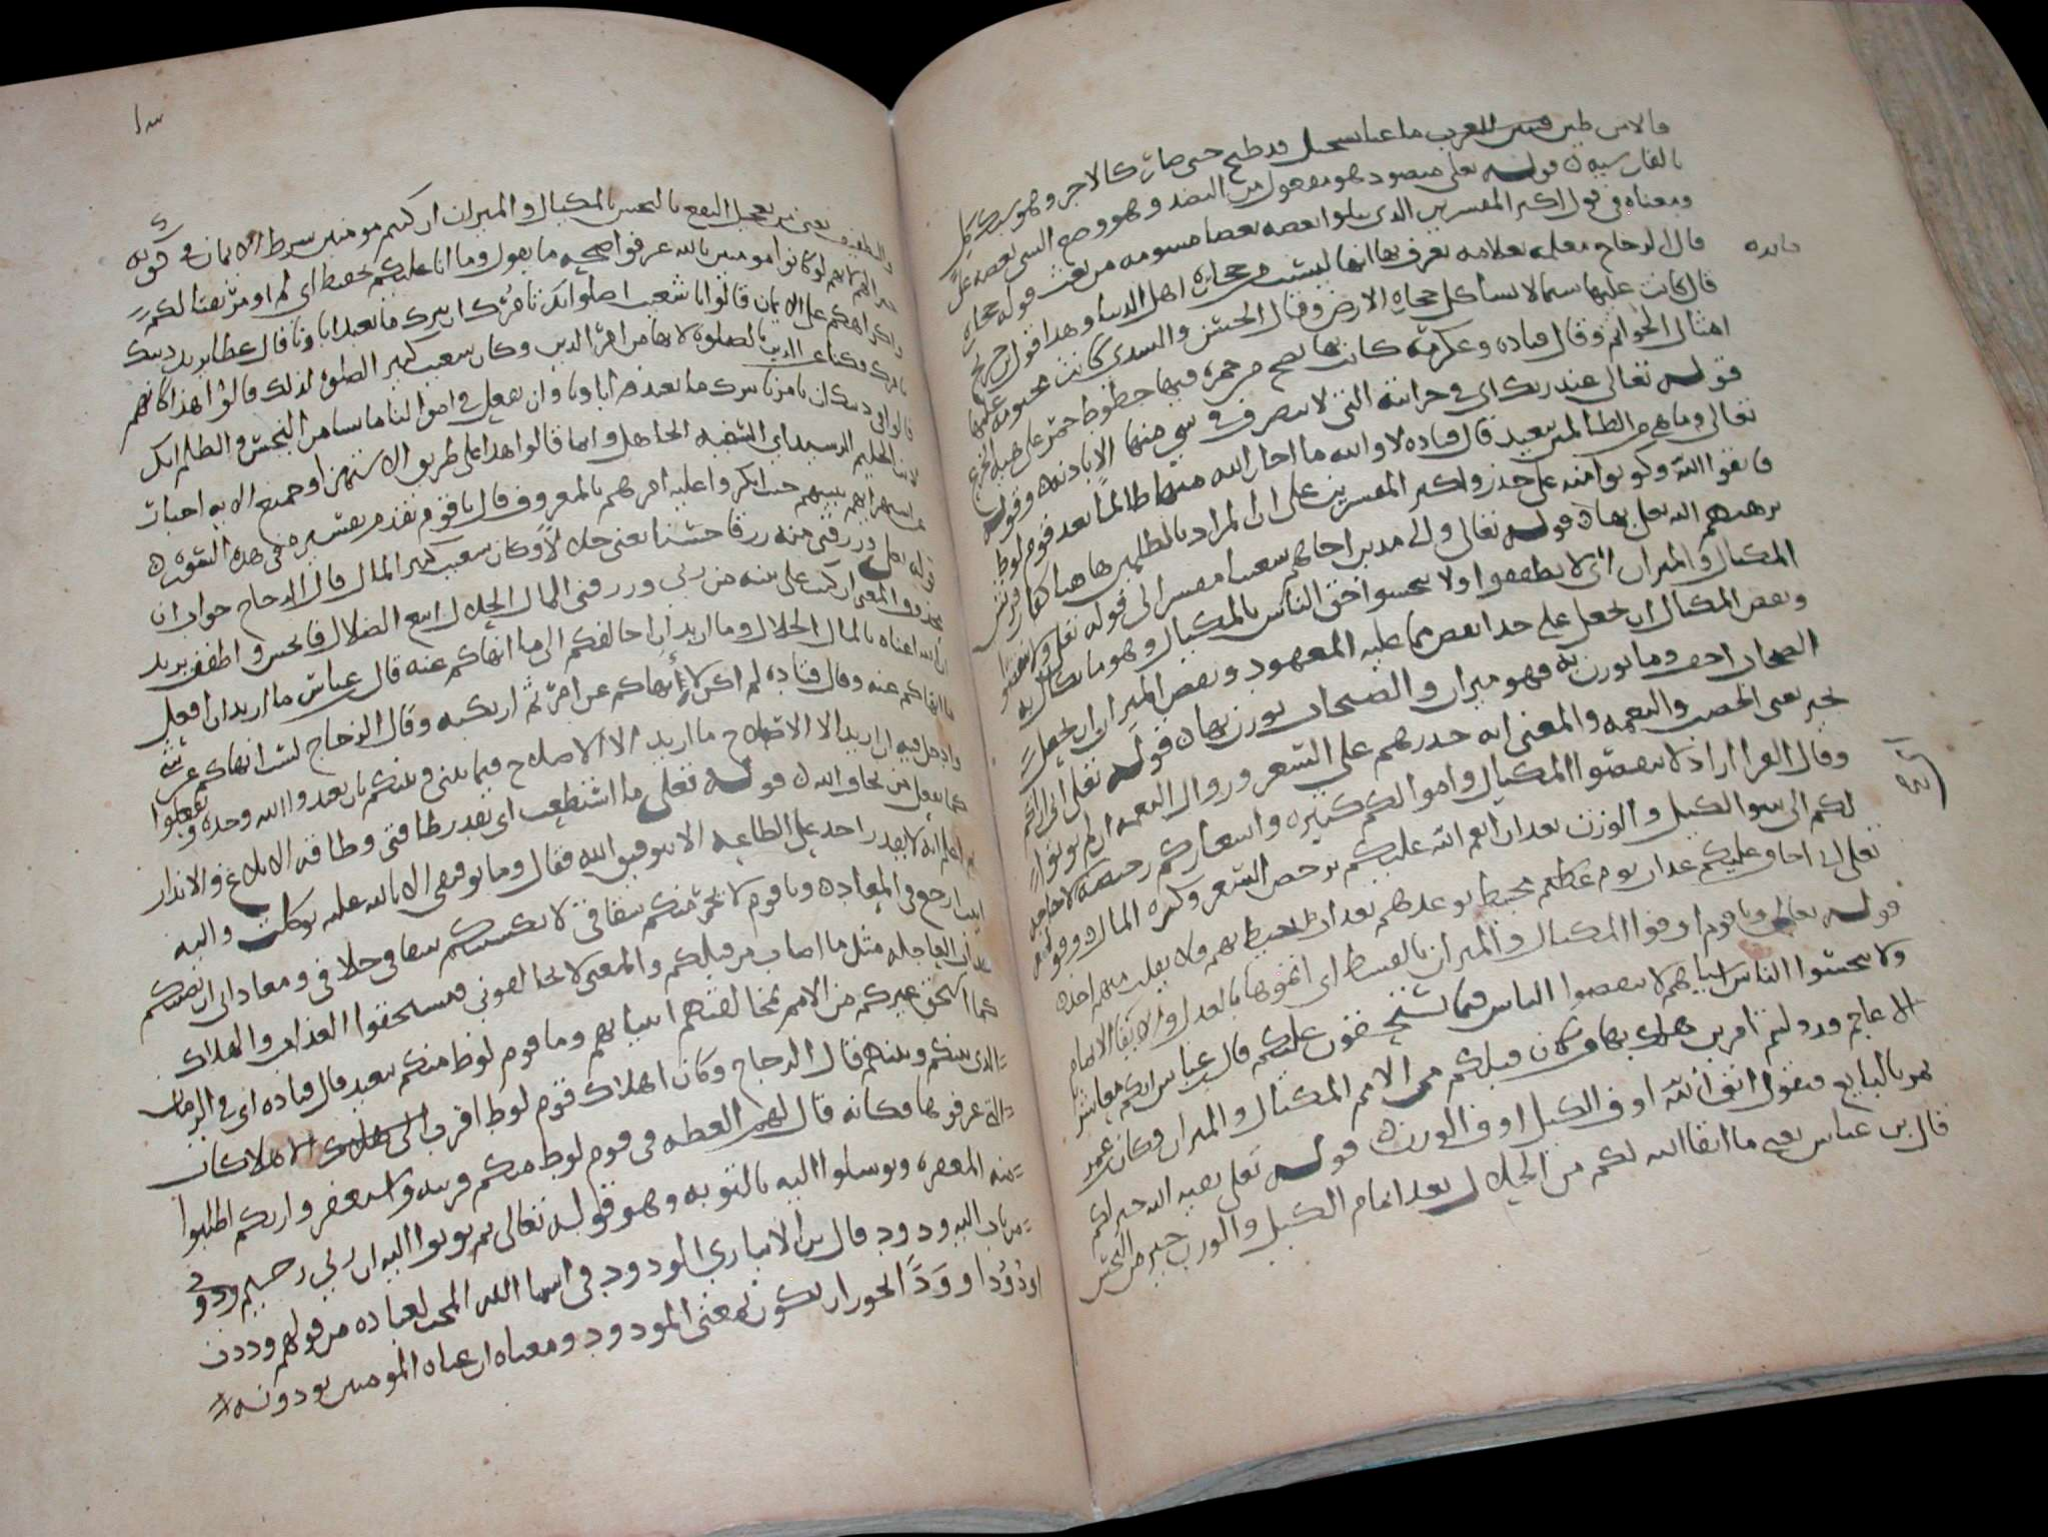 قال الاس طين قيس للعرب ما عنا سجيل قد طبخ حتى صار كالاجر وهو سنك كل
بالفارسية قوله تعالى منضود هو مفعول من النضد وهو وضع الشي بعضه على
ومعناه في قول اكثر المفسرين الذي يتلوا بعضه بعضا مسومه من نعت قوله حجاره
قال الزجاج معلمه بعلامه يعرف بها انها ليست من حجاره اهل الدنيا وهذا قول
فايده
قال كانت عليها سيما لا تشاكل حجاره الارض وقال الحسن والسدي كانت مختومه عليها
امثال الخواتم وقال قتاده وعكرمة كانت بها نضح من حمره فيها خطوط حمر على هيه الجزع
قوله تعالى عند ربك اي في خزاينه التي لا يتصرف في شي منها الا باذنه وقوله
تعالى وما هي من الظالمين ببعيد قال قتاده لا والله ما اجار الله منها ظالما بعد قوم لوط
فاتقوا الله وكونوا منه على حذر واكثر المفسرين على ان المراد بالظلمين هاهنا كفار قريش
يرهبهم الله تعالى بها قوله تعالى والى مدين اخاهم شعيبا مفسر الى قوله تعالى ولا تنقصوا
المكيال والميزان اي لا تطففوا ولا تبخسوا حق الناس بالمكيال وهو ما يكال به
ونقص المكيال ان يجعل على حد انقص مما عليه المعهود ونقص الميزان ان يجعل
الصنجات اخف وما توزن به فهو ميزان والصنجات توزن بها قوله تعالى اني اراكم
بخير يعني الخصب والنعمه والمعنى انه حذرهم غلى السعر وزوال النعمه ان لم يتوبوا
وقال الفرا اراد لا تنقصوا المكيال واموالكم كثيره واسعاركم رخيصه لا حاجه
لكم الى سو الكيل والوزن بعد ان انعم الله عليكم برخص السعر وكثره المال وقوله
تعالى اني اخاف عليكم عذاب يوم عظيم محيط توعدهم بعذاب يحيط بهم فلا يفلت منهم احد
قوله تعالى ويا قوم اوفوا المكيال والميزان بالقسط اي اتموها بالعدل والايفا الاتمام
ولا تبخسوا الناس اشياهم لا تنقصوا الناس مما تستحقون عليكم قال بن عباس انكم معاشر
الاعاجم قد وليتم امرين هلك بها من كان قبلكم من الامم المكيال والميزان وكان عمر
يمر بالبايع فيقول اتق الله اوف الكيل اوف الوزن قوله تعالى بقيه الله خير لكم
قال بن عباس يعني ما ابقا الله لكم من الحلال بعد اتمام الكيل والوزن خير من البخس
والتطفيف يعني من تعجيل النفع بالبخس بالمكيال والميزان ان كنتم مومنين شرط الايمان في كونه
خيرا لهم لانهم لو كانوا مومنين بالله عرفوا صحه ما يقول وما انا عليكم بحفيظ اي لم اومر بقتالكم
واكراهكم على الايمان قالوا يا شعيب اصلواتك تامرك ان نترك ما يعبد اباونا قال عطا يريد دينك
يامرك وكنا عن الدين بالصلوه لانها من امر الدين وكان شعيب كثير الصلوه لذلك قالوا هذا كانهم
قالوا دينك ان يامرنا نترك ما يعبد اباونا وان نفعل في اموالنا ما نشا من البخس والظلم انك
لانت الحليم الرشيد اي السفيه الجاهل وانما قالوا هذا على طريق الاستهزا
حيث انكروا عليه امرهم بالمعروف قال يا قوم تقدم تفسيره في هذه السوره
ورزقني منه رزقا حسنا يعني حلالا وكان شعيب كثير المال قال الزجاج جواب ان
محذوف المعنى ان كنت على بينه من ربي ورزقني المال الحلال اتبع الضلال فابخس واطفف يريد
ان الله اغناه بالمال الحلال وما اريد ان اخالفكم الى ما انهاكم عنه قال عباس ما اريد ان افعل
ما انهاكم عنه وقال قتاده لم اكن لانهاكم عن امر ثم ارتكبه وقال الزجاج لست انهاكم عن شي
وادخل فيه ان اريد الا الاصلاح ما اريد الا الاصلاح فيما بيني وبينكم بان تعبدوا الله وحده وتفعلوا
كما يفعل من يخاف الله قوله تعالى ما استطعت اي بقدر طاقتي وطاقته الابلاغ والانذار
ثم اعلم انه لا يقدر احد على الطاعه الا بتوفيق الله فقال وما توفيقي الا بالله عليه توكلت واليه
انيب ارجع في المعاد ويا قوم لا يجرمنكم شقاقي لا يكسبنكم شقاقي خلافي ومعاداتي ان يصيبكم
عذاب العاجله مثل ما اصاب من قبلكم والمعنى لا تخالفوني فتستحقوا العذاب والهلاك
كما استحق غيركم من الامم بمخالفتهم انبياهم وما قوم لوط منكم ببعيد قال قتاده اي في الزمان
الذي بينكم وبينهم قال الزجاج وكان اهلاك قوم لوط اقرب
التي عرفوها فكانه قال لهم العظه في قوم لوط منكم قريبه واستغفروا ربكم اطلبوا
منه المغفره وتوسلوا اليه بالتوبه وهو قوله تعالى ثم توبوا اليه ان ربي رحيم ودود
من تاب اليه ودود قال بن الانباري الودود في اسما الله المحب لعباده من قولهم وددت
اود ودا وودا الجواز ان يكون بمعنى المودود ومعناه ان عباده المومنين يودونه